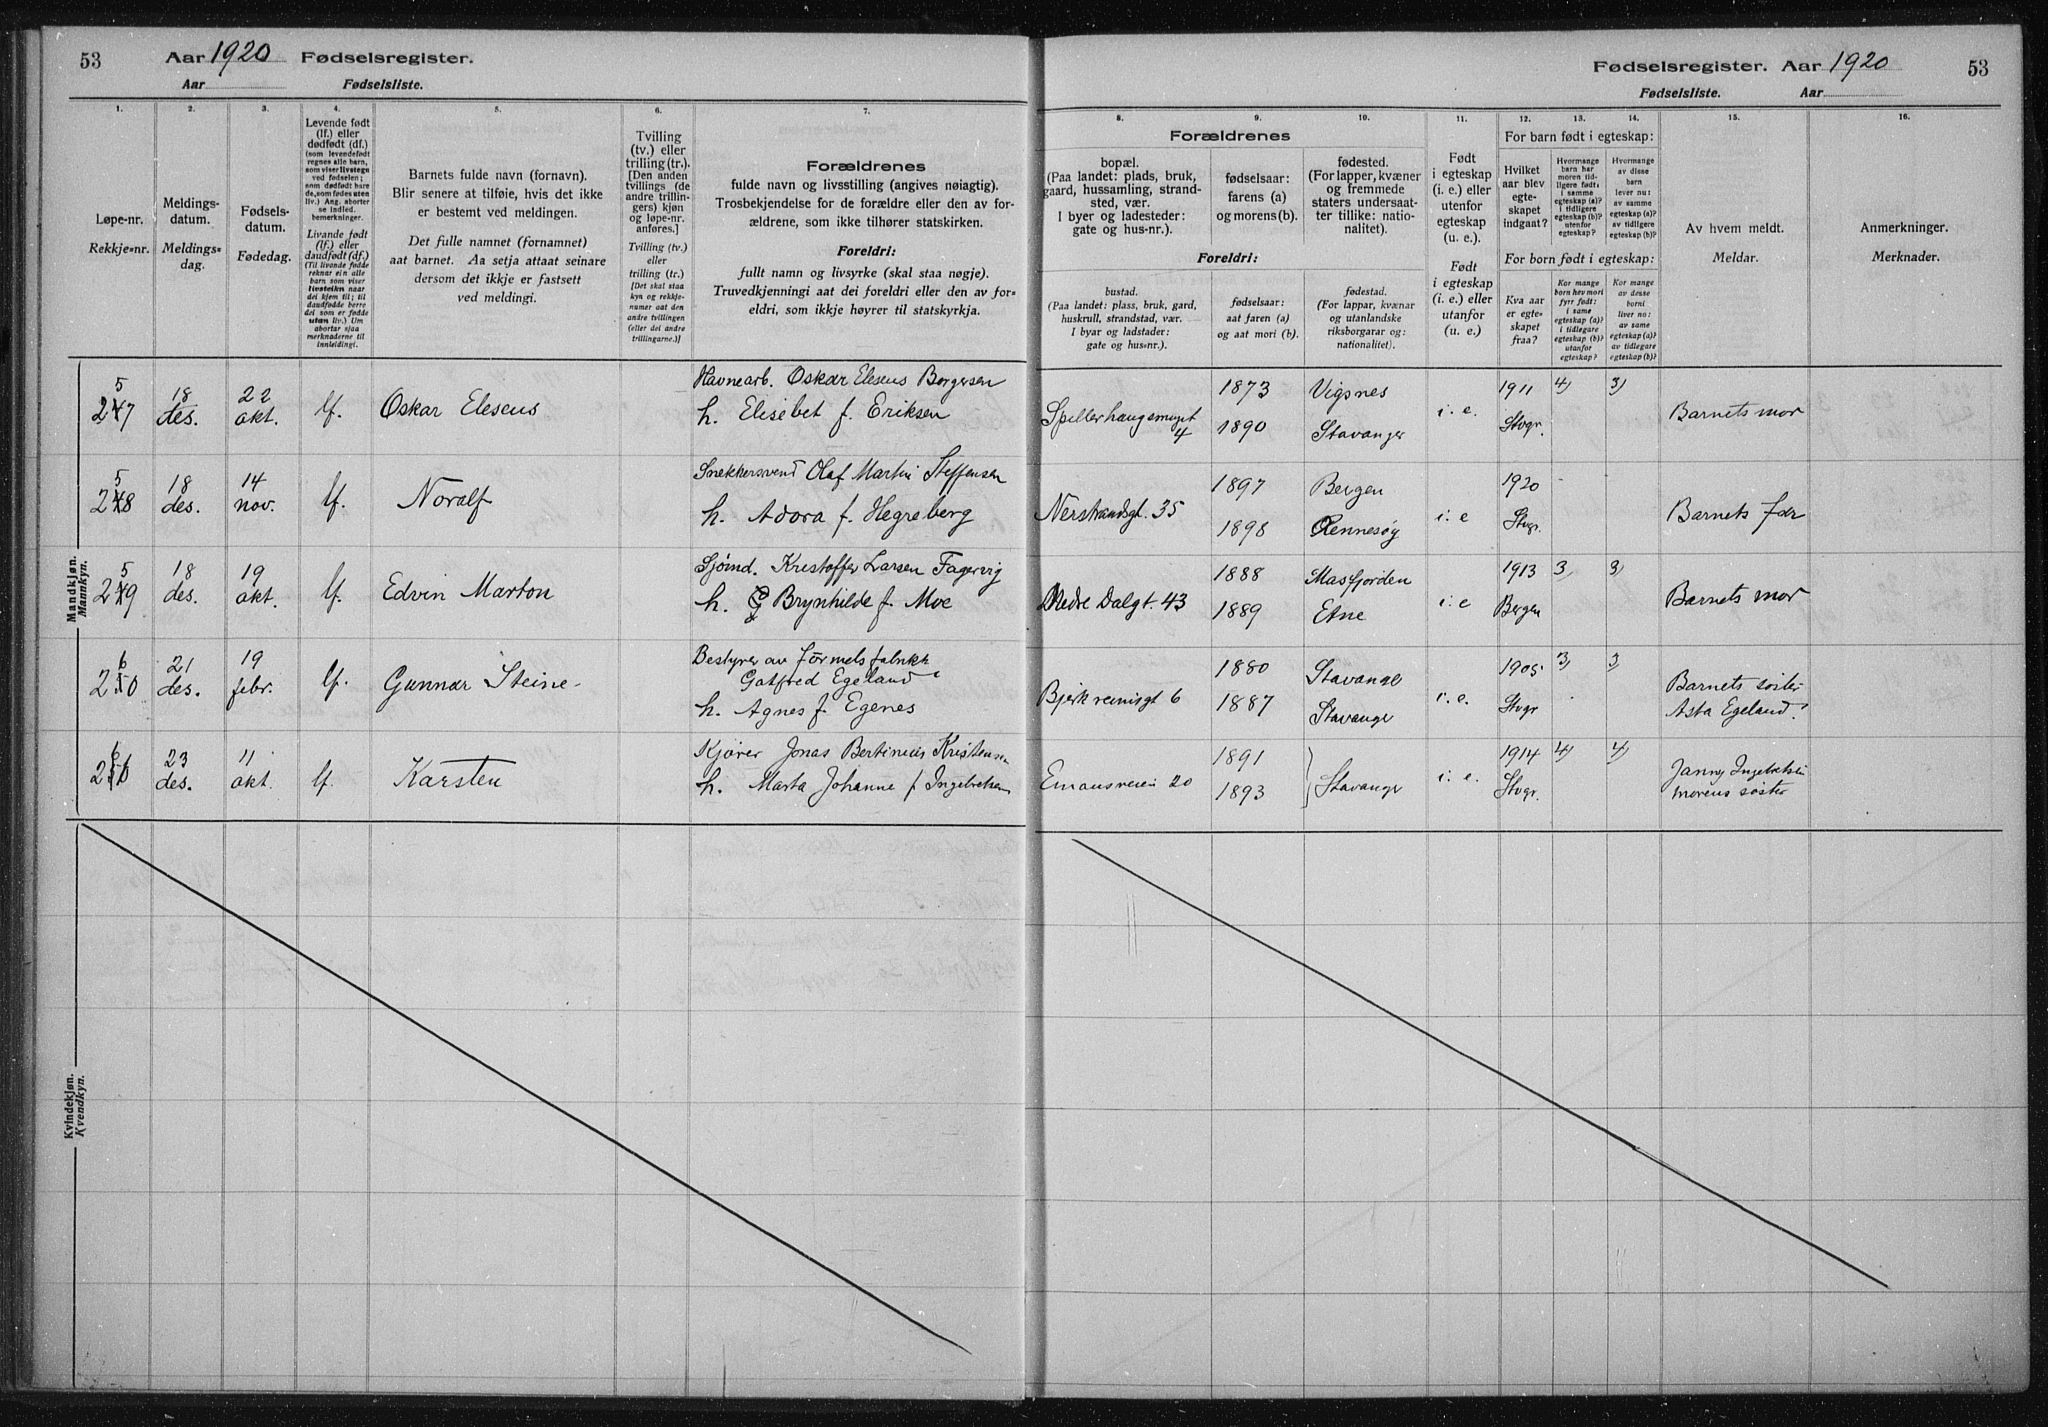 53
Aar 1920 Fødselsregister.
Aar Fødselsliste.
Fødselsregister. Aar 1920
53
Fødselsliste. Aar
1.
2.
3.
4.
5.
6.
7.
8.
9.
10.
11.
12.
13.
14.
15.
16.
Løpe-nr.
Rekkje-nr.
Meldings-
datum.
Meldings-
dag.
Fødsels-
datum.
Fødedag.
Levende født
(lf.) eller
dødfødt (df.)
(som levendefødt
regnes alle barn,
som viser livstegn
ved fødselen;
som dødfødt bare
de, som fødes uten
liv.) Ang. aborter
se indled.
bemerkninger.
Livande født
(lf.) eller
daudfødt (df.)
(Til livande fødde
reknar ein alle
barn som viser
livsteikn naar
dei kjem til; til
daudfødde berre
dei som er fødde
utan liv.) Um
abortar sjaa
merknaderne til
innleidingi.
Barnets fulde navn (fornavn).
Blir senere at tilføie, hvis det ikke
er bestemt ved meldingen.
Det fulle namnet (fornamnet)
aat barnet. Aa setja attaat seinare
dersom det ikkje er fastsett
ved meldingi.
Tvilling
(tv.) eller
trilling (tr.).
[Den anden
tvillings (de
andre trillin-
gers) kjøn
og løpe-nr.
anføres.]
Tvilling (tv.)
eller
trilling (tr.)
[Det skal staa
kyn og rekkje-
numer aat den
andre tvillingen
(eller dei andre
trillingarne.)]
Forældrenes
fulde navn og livsstilling (angives nøiagtig).
Trosbekjendelse for de forældre eller den av for-
ældrene, som ikke tilhører statskirken.
Foreldri:
fullt namn og livsyrke (skal staa nøgje).
Truvedkjenningi aat dei foreldri eller den av for-
eldri, som ikkje høyrer til statskyrkja.
Forældrenes
bopæl.
(Paa landet: plads, bruk,
gaard, hussamling, strand-
sted, vær.
I byer og ladesteder:
gate og hus-nr.).
fødselsaar:
farens (a)
og morens (b).
fødested.
(For lapper, kvæner
og fremmede
staters undersaat-
ter tillike: natio-
nalitet).
Foreldri:
bustad.
(Paa landet: plass, bruk, gard,
huskrull, strandstad, vær.
I byar og ladstader:
gate og hus-nr.).
fødselsaar:
aat faren (a)
og aat mori (b).
fødestad.
(For lappar, kvænar
og utanlandske
riksborgarar og:
nationalitet).
Født
i egteskap
(i. e.) eller
utenfor
egteskap
(u. e.).
Født
i egteskap
(i. e.) eller
utanfor
(u. e.).
For barn født i egteskap:
Hvilket
aar blev
egte-
skapet
indgaat?
Hvormange
barn har
moren tid-
ligere født:
i samme
egteskap (a)?
i tidligere
egteskap (b)?
utenfor
egteskap?
Hvormange
av disse
barn
lever nu:
av samme
egteskap (a)?
av tidligere
egteskap (b)?
For born født i egteskap:
Kva aar
er egte-
skapet
fraa?
Kor mange
born hev mori
fyrr født:
i same
egteskap (a)?
i tidlegare
egteskap (b)?
utanfor
egteskap?
Kor mange
av desse
borni
liver no:
av same
egteskap (a)?
av tidlegare
egteskap (b)?
Av hvem meldt.
Meldar.
Anmerkninger.
Merknader.
Mandkjøn.
Mannkyn.
257 18 des. 22 okt. lf. Oskar Eleseus Havnearb. Oskar Eleseus Borgersen
h. Elisebet f. Eriksen
Spillerhaugsmuget 4 1873 Vigsnes i. e. 1911 4) 3) Barnets mor
1890 Stavanger Stvgr.
258 18 des. 14 nov. lf. Noralf Snekkersvend Olaf Martin Steffensen
h. Adora f. Hegreberg
Nerstrandsgt. 35 1897 Bergen i. e 1920 Barnets far
1898 Rennesøy Stvgr.
259 18 des. 19 okt. lf. Edvin Marton Sjømd. Kristoffer Larsen Fagervig
h. Brynhilde f. Moe
Nedre Dalgt. 43 1888 Masfjorden i. e 1913 3) 3) Barnets mor
1889 Etne Bergen
260 21 des. 19 febr. lf. Gunnar Steine Bestyrer av
Gotfred Egeland
h. Agnes f. Egenes
Bjerkreimsgt 6 1880 Stavange i. e. 1905 3) 3) Barnets søster
1887 Stavange Stvgr Asta Egeland
23 des. 11 okt. lf. Karsten Kjører Jonas Bertinius Kristensen
h. Marta Johanne f Ingebretsen
Emausveien 20 1891 Stavange i. e. 1914 4) 4) Janny Ingebretsen
1893 Stvgr. morens søster
Kvindekjøn.
Kvendkyn.